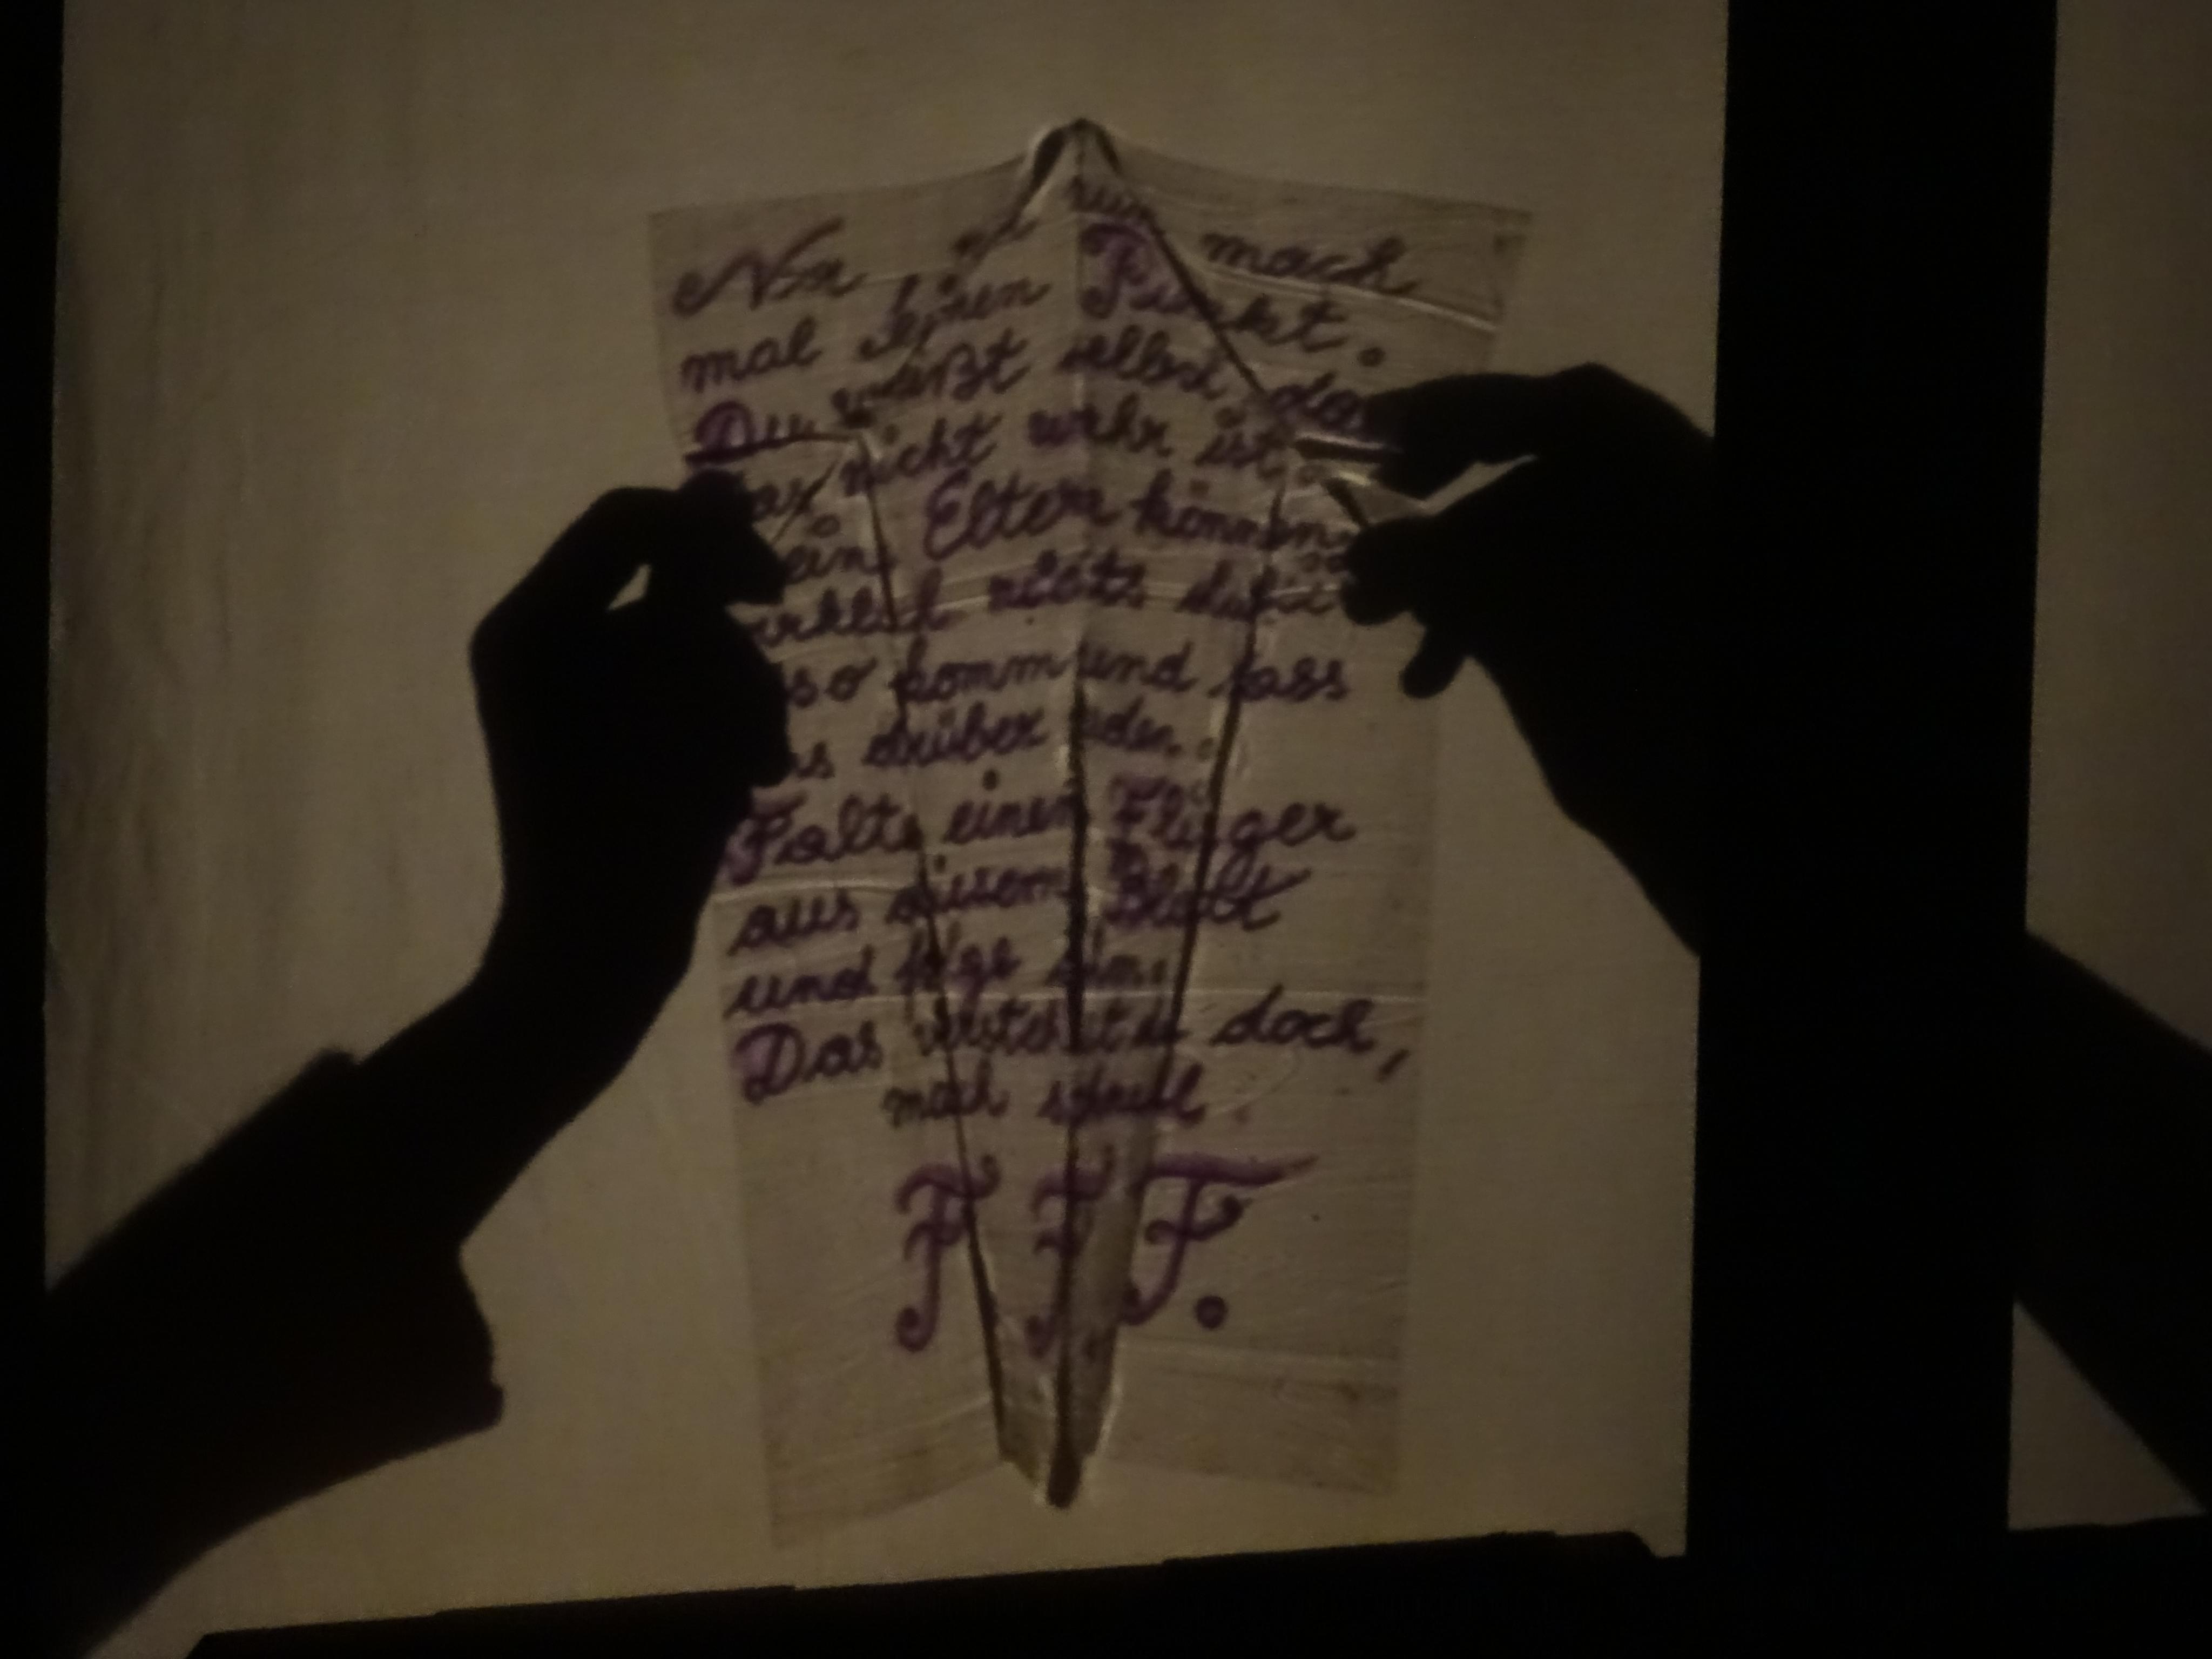 Na nun mach
mal keinen Punkt.
Du weißt selbst, das
nicht wahr ist.
Eltern können
nichts dafür
komm und lass
drüber reden.
Falte einen Flieger
aus diesem Blatt
und folge ihm.
Das doch,
mach schnell.
F F F.